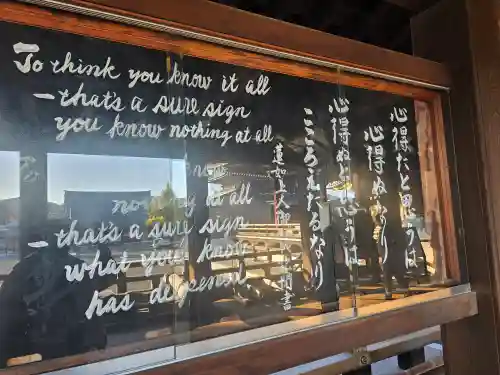 To think you know it all
—that's a sure sign
you know nothing at all
now
nothing at all
—that's a sure sign
what you know
has
心得たと思うは
心得ぬなり
心得ぬと思うは
こころえたるなり
蓮如上人御一代記聞書